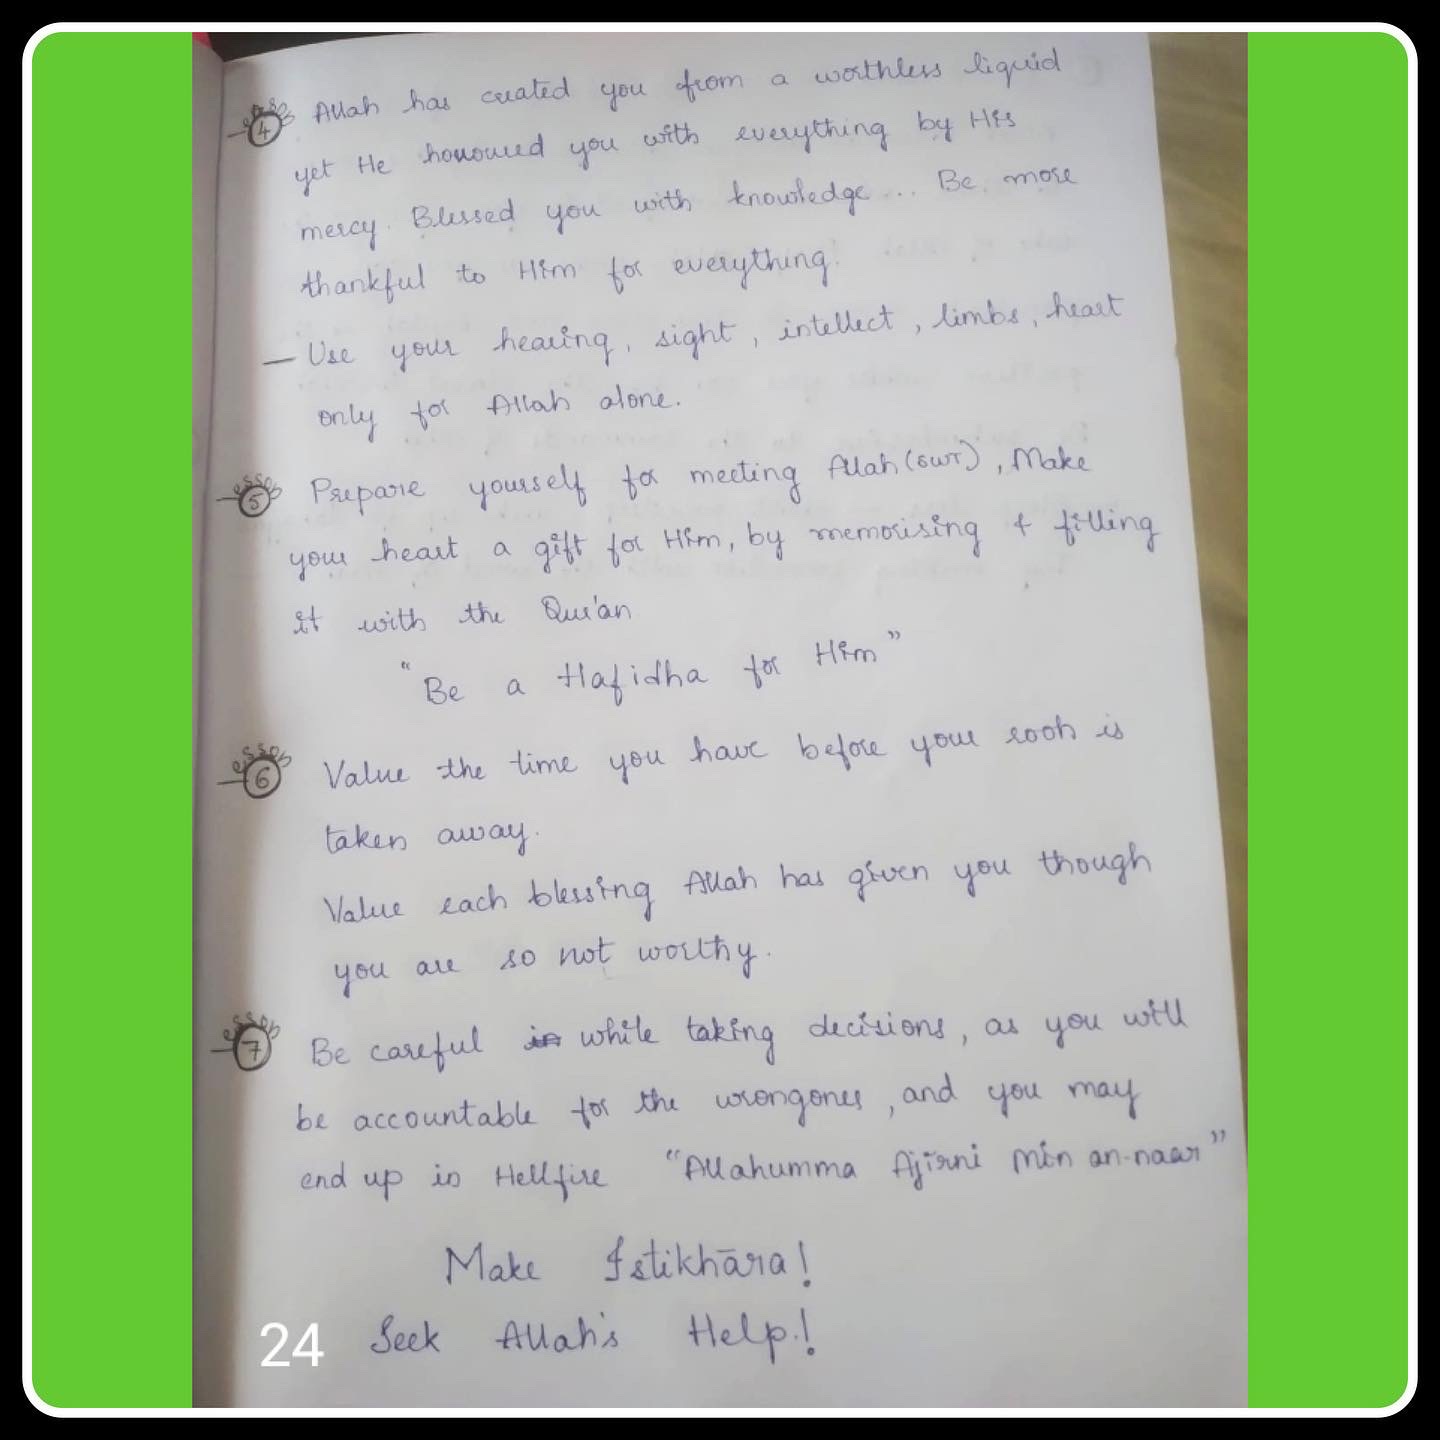 Lesson 4 Allah has created you from a worthless liquid
yet He honoured you with everything by His
mercy. Blessed you with knowledge... Be more
thankful to Him for everything.
— Use your hearing, sight, intellect, limbs, heart
only for Allah alone.
Lesson 5 Prepare yourself for meeting Allah (swt), Make
your heart a gift for Him, by memorising & filling
it with the Qur'an
"Be a Hafidha for Him"
Lesson 6 Value the time you have before your rooh is
taken away.
Value each blessing Allah has given you though
you are so not worthy.
Lesson 7 Be careful in while taking decisions, as you will
be accountable for the wrongones, and you may
end up in Hellfire "Allahumma Ajirni min an-naar"
Make Istikhāra!
24 Seek Allah's Help!